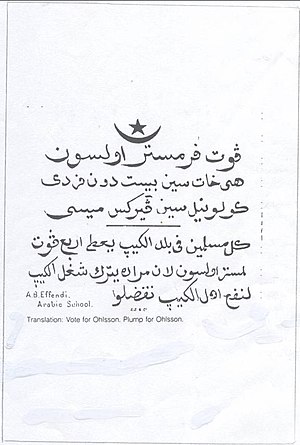 ڤوت فر مستر اولسون
هي خات سين بيست دون فر دي
كولونيل سين ڤيركس ميسي
كل مسلمين في بلد الكيپ يعطي اربع ڤوت
لمستر اولسون لان مراده يترك شغل الكيپ
لنفع اول الكيپ نفضلوا
A.B.Effendi.
Arabic School.
Translation: Vote for Ohlsson. Plump for Ohlsson.